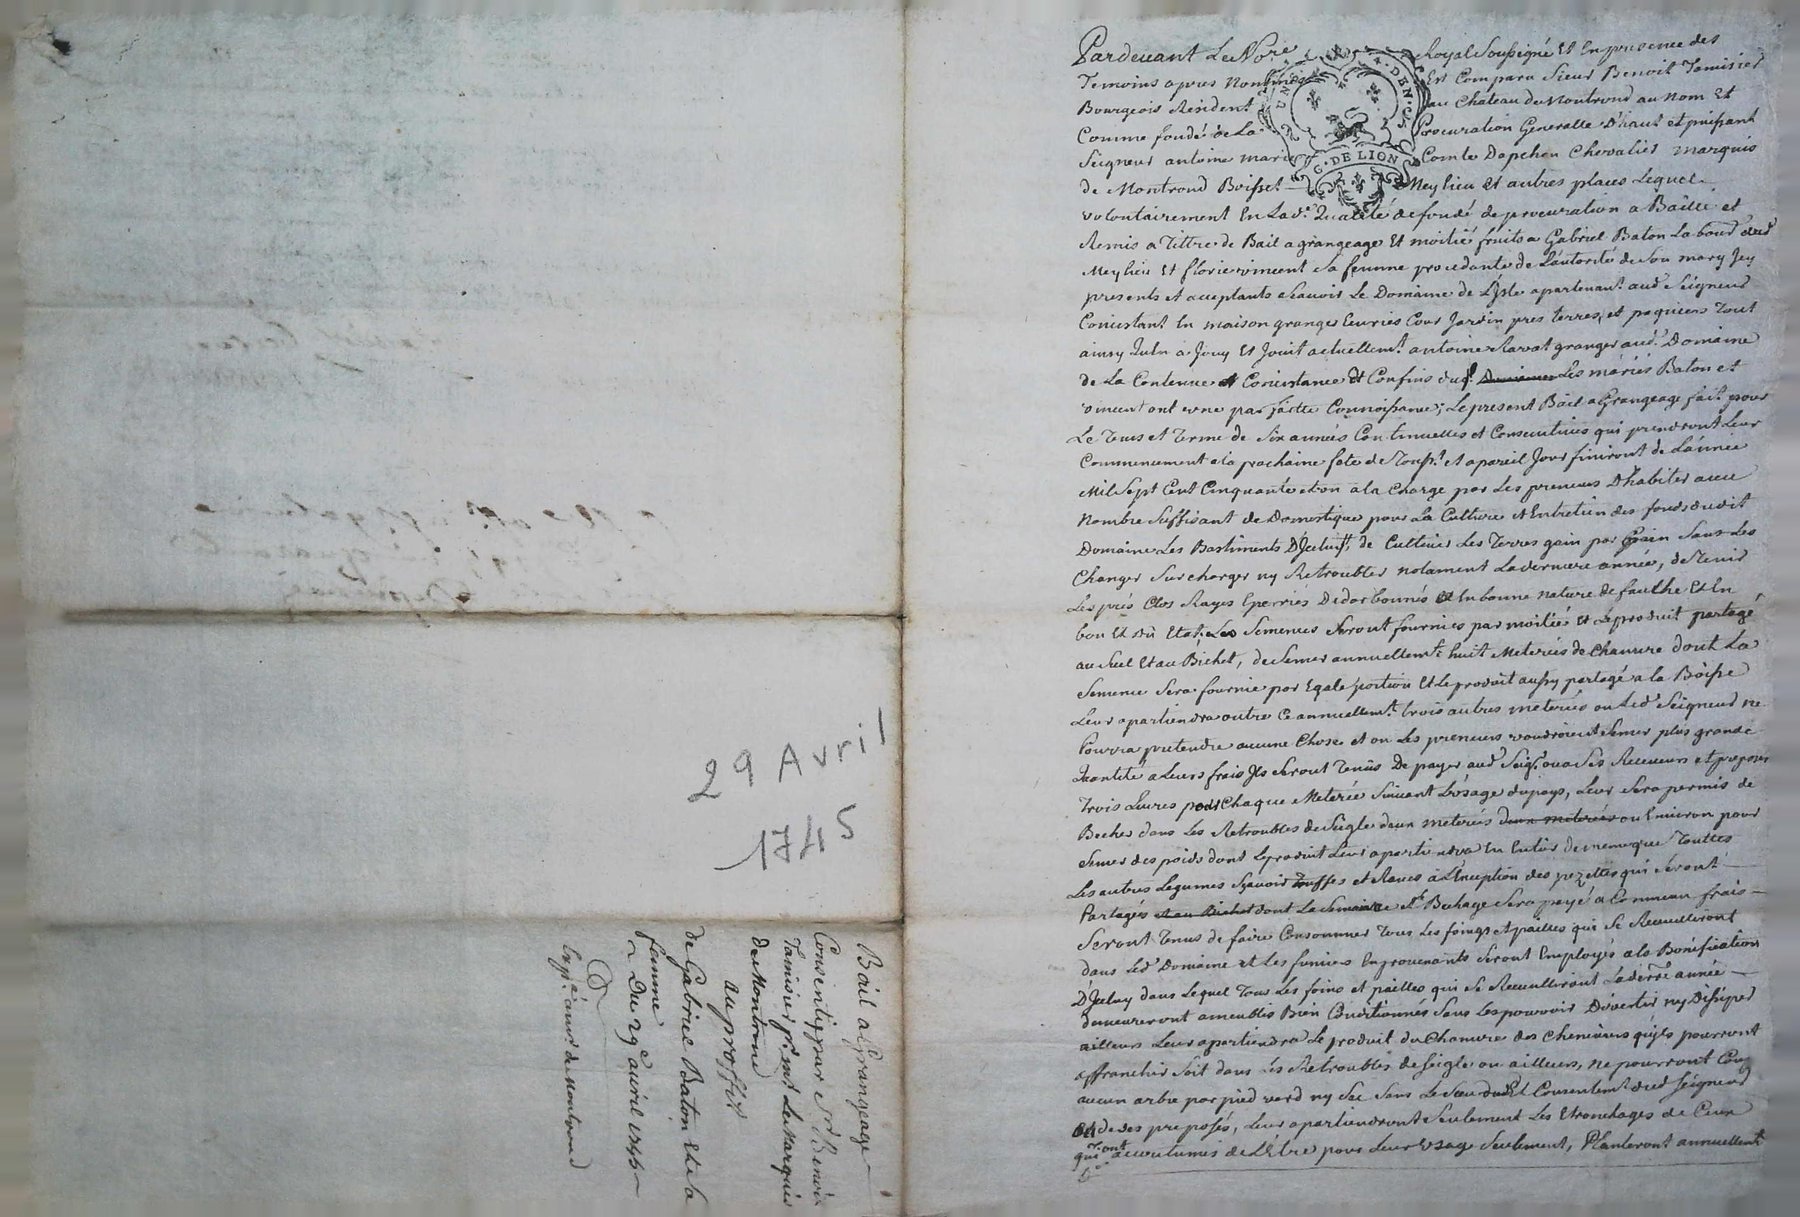 29 Avril
1745
Bail a Grangeage
Consenty par Sr Benoit
Tamisier pr. mr. Le Marquis
de Montrond
au proffit
de Gabriel Baton Et la
femme
Du 29e avril 1745
Expé. à mr. de Montrond
Pardevant Le Nore. Royal Soussigné Et En presence des
Temoins apres Nommes Est Comparu Sieur Benoit Tamisier
Bourgeois Resident au Chateau de Montrond au Nom Et
Comme fondé de La Procuration Generalle D'haut et puissant
Seigneur antoine marie Comte Dapchon Chevalier marquis
de Montrond Boisset Meylieu Et autres places Lequel
volontairement En Lade. Qualité de fondé de procuration a Baillé et
Remis a Tittre de Bail a grangeage Et moitié fruits a Gabriel Baton Laboureur
Meylieu Et florie vincent sa femme procedante de L'autorité de Son mary Jcy
presents et acceptants Scavoir Le Domaine de L'Isle apartenant aud Seigneur
Consistant En maison granges Ecuries Cour Jardin pres terres, et paquiers Tout
ainsy Qu'en a Jouy Et Jouit actuellemt. antoine Ravat granger aud. Domaine
de La Contenue Consistance Et Confins duql. Les mariés Baton et
vincent ont eu par faitte Connoissance; Le present Bail a Grangeage fait pour
Le Tems et Terme de Six années Continuelles et Consecutives qui prendront Leur
Commencement a la prochaine fete de Touss.t et a pareil Jour finiront de L'année
Mil Sept Cent Cinquante et un a la Charge par Les preneurs D'habiter avec
Nombre Suffisant de Domestique pour La Culture et Entretien des fonds dudit
Domaine Les Bastiments D'Jceluy, de Cultiver Les Terres gain par gain Sans Les
Changer Surcharger ny Retroubler notament La derniere année, de Tenir
Les prés Clos Rayes Eperriés Et En bonne nature de faulhe Et En
bon Et Dû Etat, Les Semences Seront fournies par moitié Et Le produit partagé
au Seul Et au Bichet, de Semer annuellemt. huit Meterés de Chanvre dont La
Semence Sera fournie par Egale portion Et Le produit aussy partagé a la Boisse
Leur apartiendra outre Ce annuellemt. trois autres meterés ou Led. Seigneur ne
Pourra pretendre aucune Chose et ou Les preneurs voudroient Semer plus grande
Quantité a Leurs frais Jls Seront Tenüs De payer aud Seigr. ou a Ses Receveurs et preposés
Trois Livres pour Chaque Meterée Suivant L'usage du pays, Leur Sera permis de
Becher dans Les Retroubles de Seigle deux meterés deux meterés ou Environ pour
Semer des poids dont Le produit Leur apartiendra En Entier de meme que Touttes
Les autres Legumes Scavoir Truffes et Raves à L'Exception des pezettes qui Seront
Partagés et au Bichet dont La Semaille et Bechage Sera payé a Commun frais
Seront Tenus de faire Consommer Tous Les foings et pailles qui Se Recueilleront
dans Led. Domaine et Les fumiers En provenants Seront Employés a la Bonification
D'Jceluy dans Lequel Tous Les foins et pailles qui Se Recueilliront La derre. année
demeureront ameublis Bien Conditionnés Sans Les pouvoir Divertir ny Dissiper
ailleurs Leur apartiendra Le produit du Chanvre des Chenevieres qu'ils pourront
affranchir Soit dans Les Retroubles de Seigle ou ailleurs, ne pourront Coup
aucun arbre par pied verd ny Sec Sans Le Sceu Et Consentemt. dud Seigneur
Et de Ses preposés, Leur apartiendront Seulement Les Etronchages de Ceux
qui ont accoutumés de L'Etre pour Leur Usage Seulement, Planteront annuellemt
G. DE LION